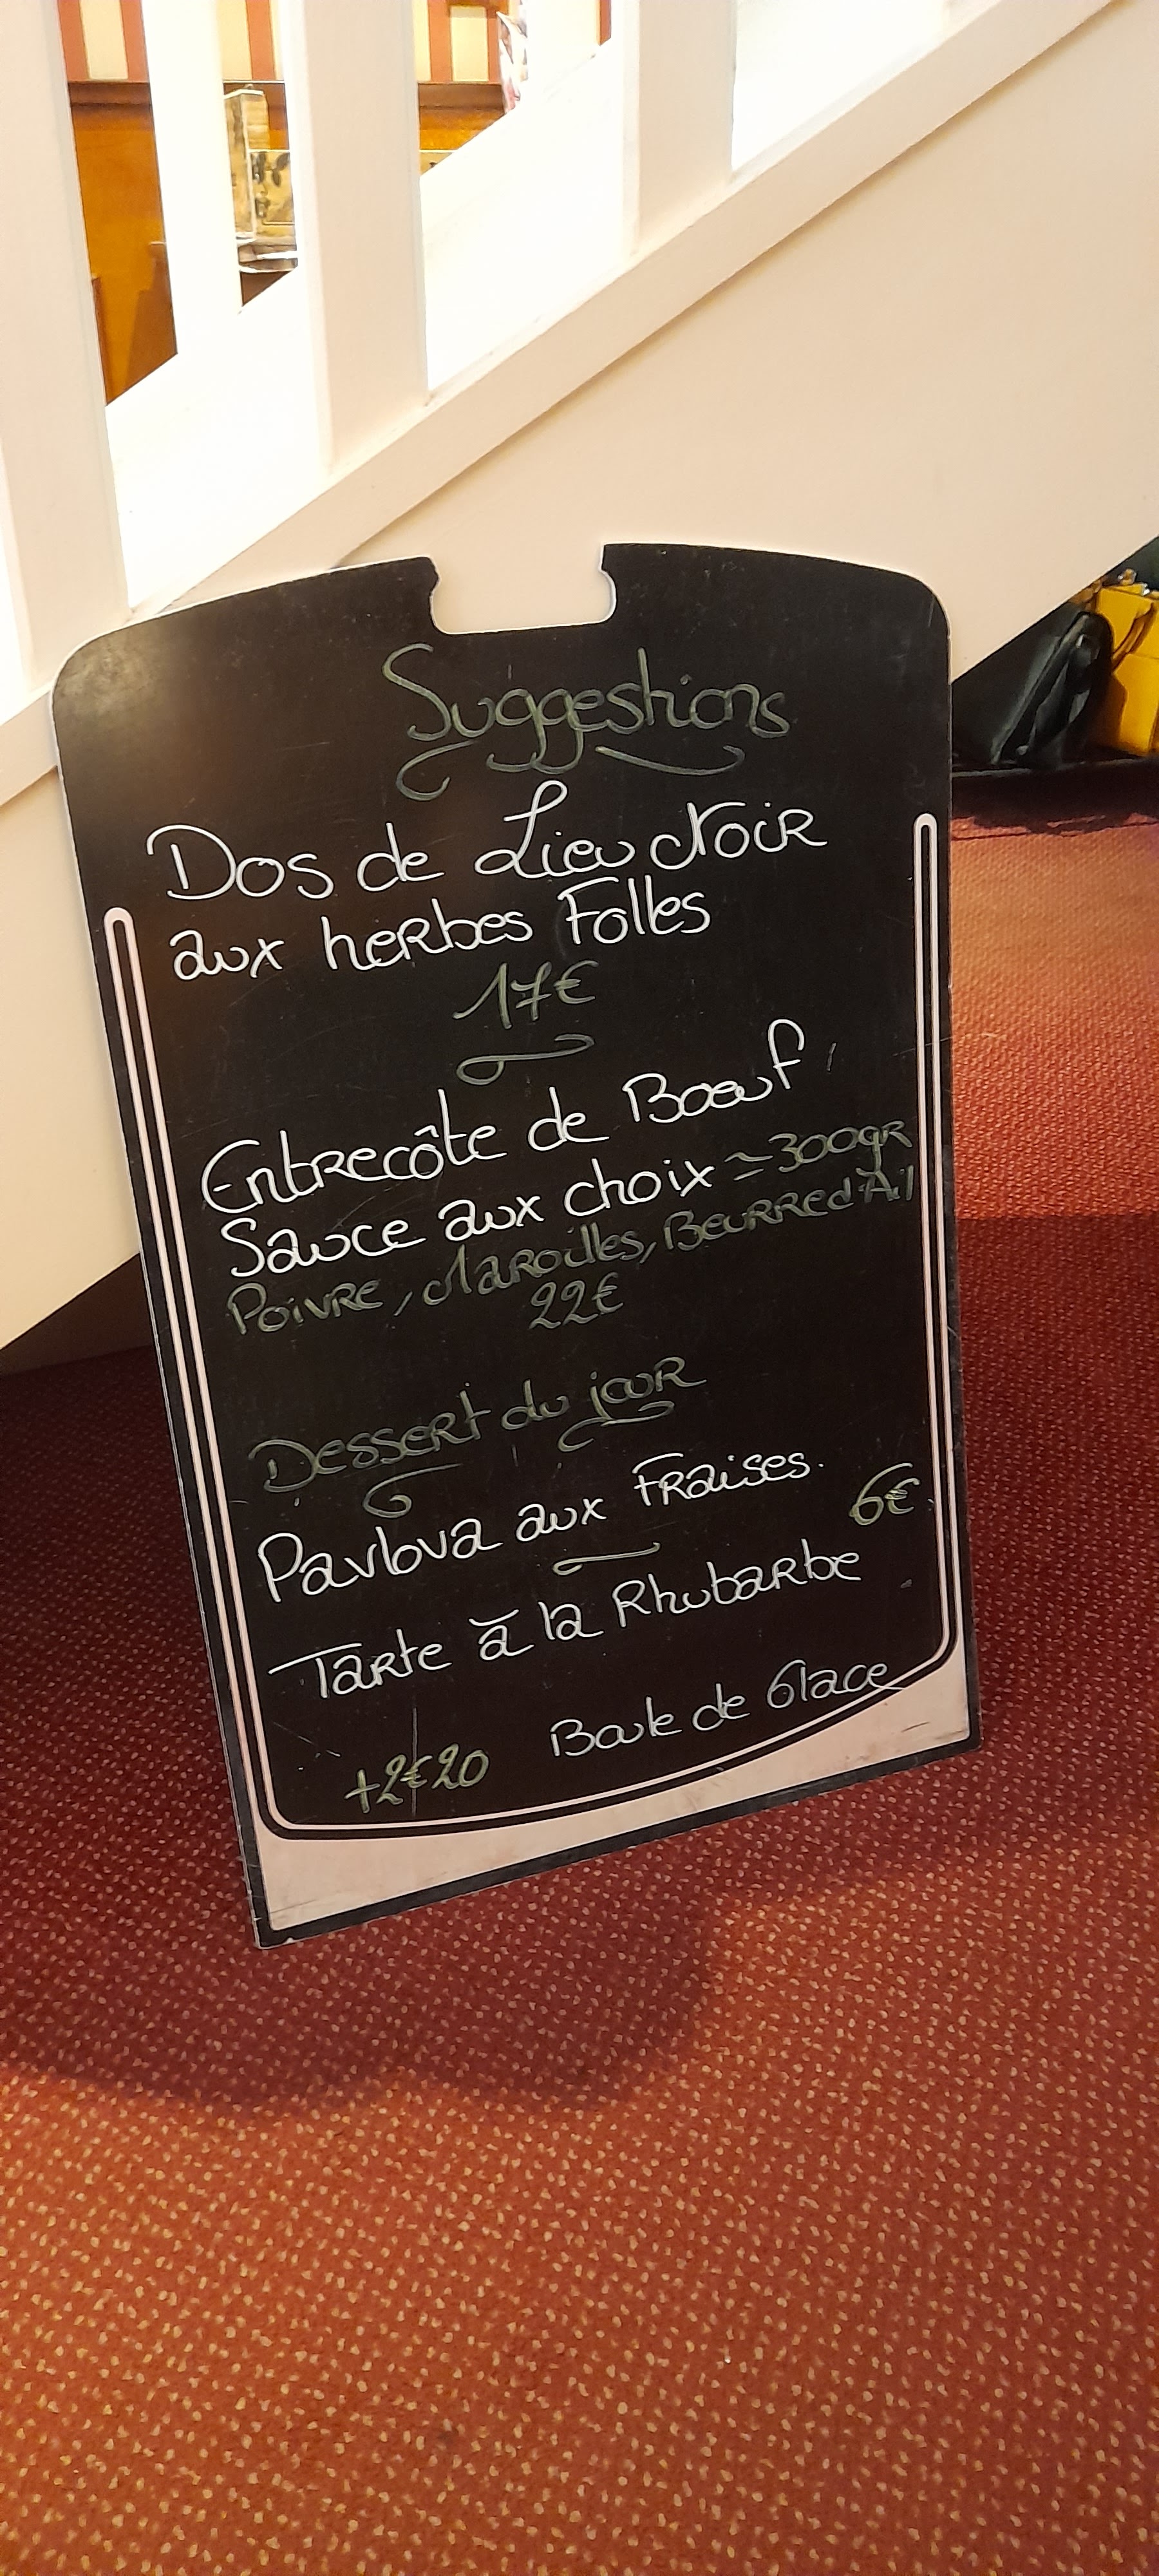 Suggestions
Dos de Lieu Noir
aux herbes Folles
17€
Entrecôte de Boeuf
Sauce aux choix ≃ 300gR
Poivre, Maroilles, Beurre d'Ail
22€
Dessert du jour
Pavlova aux Fraises.
6€
Tarte à la Rhubarbe
Boule de Glace
+2€20